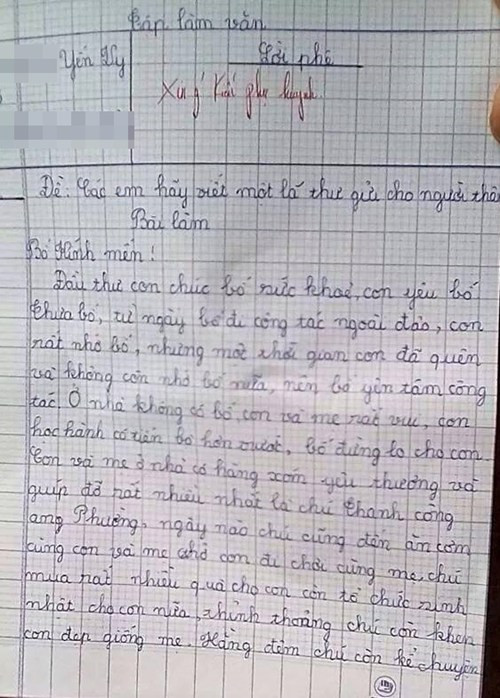 Tập làm văn
Yến Vy
Lời phê
Xin ý kiến phụ huynh
Đề: Các em hãy viết một lá thư gửi cho người thâ
Bài làm
Bố kính mến!
Đầu thư con chúc bố sức khoẻ, con yêu bố
Thưa bố, từ ngày bố đi công tác ngoài đảo, con
rất nhớ bố, nhưng một thời gian con đã quên
và không còn nhớ bố nữa, nên bố yên tâm công
tác. Ở nhà không có bố, con và mẹ rất vui, con
học hành có tiến bộ hơn trước, bố đừng lo cho con.
Con và mẹ ở nhà có hàng xóm yêu thương và
giúp đỡ rất nhiều nhất là chú Thanh công
ang Phường, ngày nào chú cũng đến ăn cơm
cùng con và mẹ chở con đi chơi cùng mẹ, chú
mua rất nhiều quà cho con còn tổ chức sinh
nhật cho con nữa, thỉnh thoảng chú còn khen
con đẹp giống mẹ. Hằng đêm chú còn kể chuyện